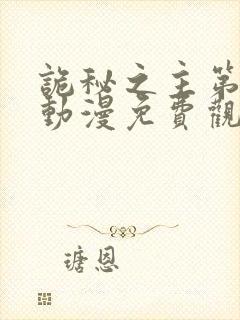 詭秘之主第
動漫免費觀
瑭恩